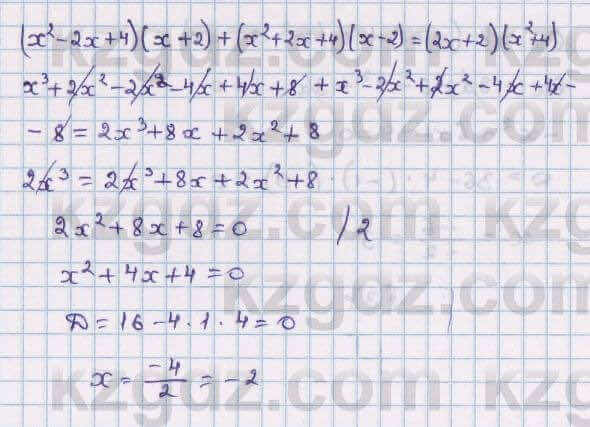 (x²-2x+4)(x+2)+(x²+2x+4)(x-2)=(2x+2)(x²+4)
x³+2x²-2x²-4x+4x+8+x³-2x²+2x²-4x+4x-
-8=2x³+8x+2x²+8
2x³=2x³+8x+2x²+8
2x²+8x+8=0 /2
x²+4x+4=0
D=16-4·1·4=0
x=-4/2=-2
kzgdz.com
kzgdz.com
kzgdz.com
kzgdz.com